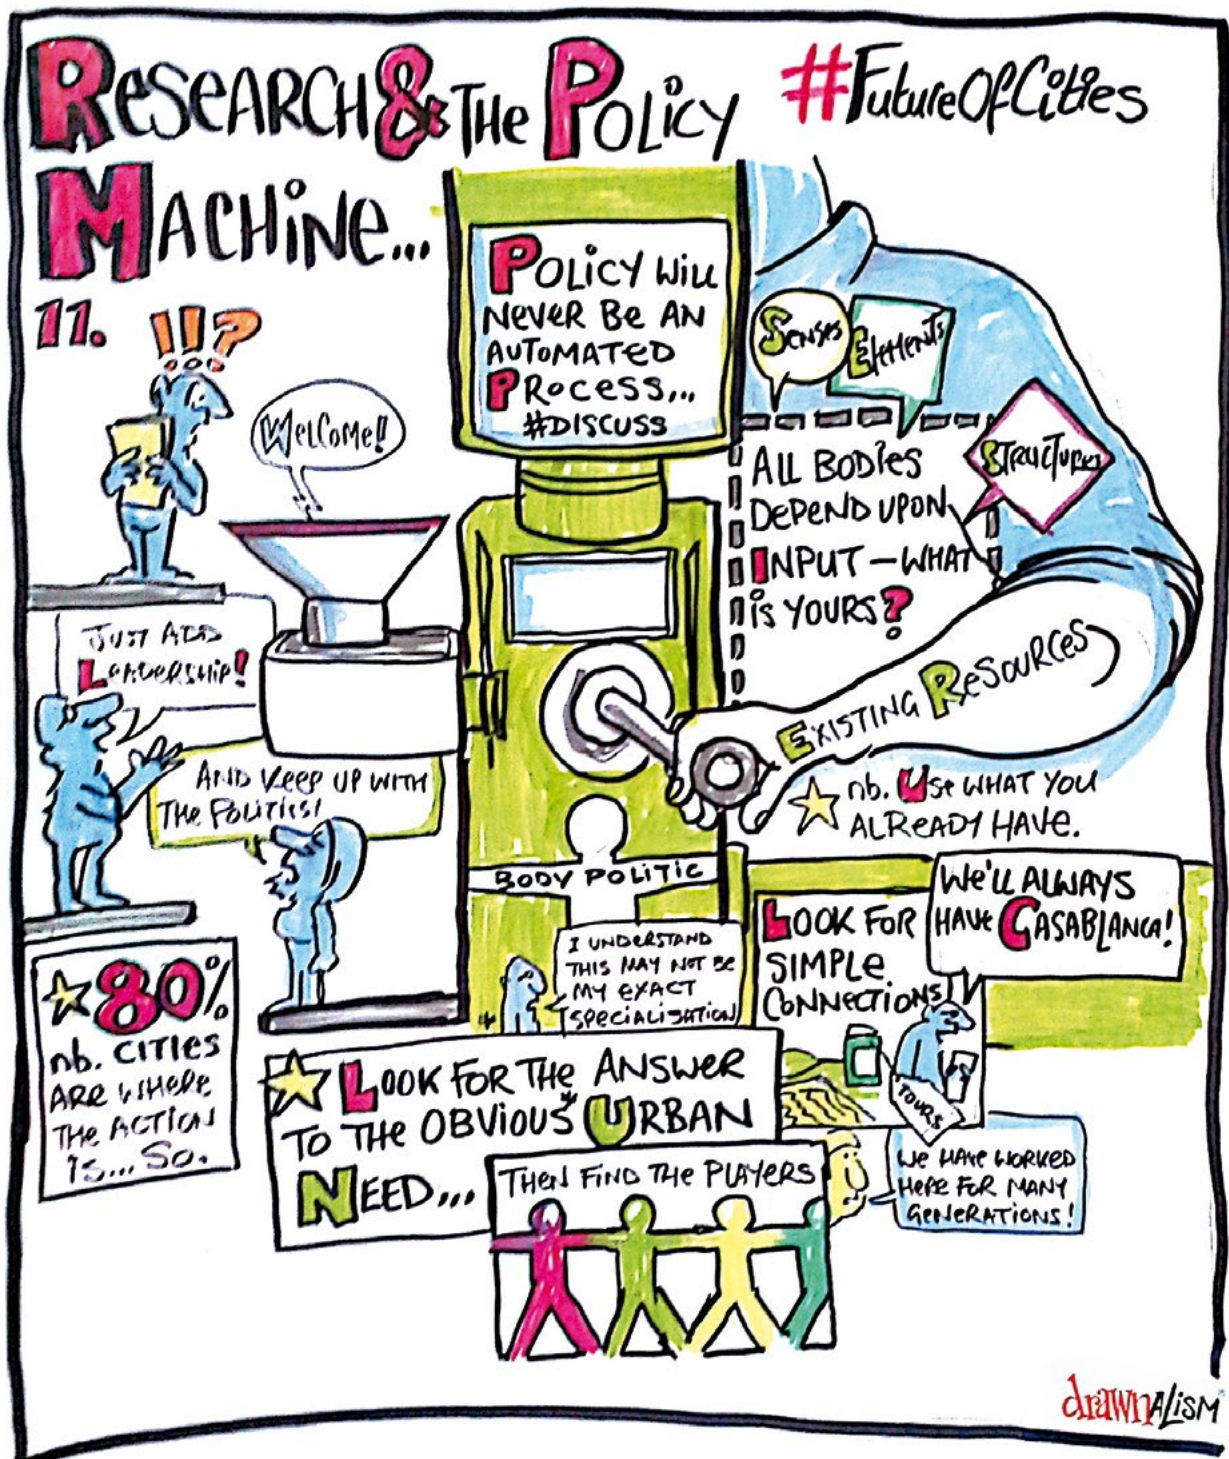 ReSeARCH & THe POLiCY
MACHiNe...
#FutureOfCities
11.
!!?
WelCome!!
POLiCY WiLL
NeVeR Be AN
AUTOMATED
PROCeSS...
#DiSCUSS
SenseS
ElementS
STRUCTUReS
ALL BODieS
DePeND UPON
INPUT – WHAT
iS YOURS?
JUST ADD
LeADeRSHiP!
AND KeeP UP WiTH
THe POLiTiCS!
EXiSTiNG ReSOURCeS
nb. USe WHAT YOU
ALReADY HAVe.
BODY POLiTiC
I UNDeRSTAND
THiS MAY NOT Be
MY eXACT
SPeCiALiSATiON
LOOK FOR
SiMPLe
CONNeCTiONS
We'LL ALWAYS
HAVe CASABLANCA!
TOURS
80%
nb. CiTieS
ARe WHeRe
THe ACTiON
iS... SO.
LOOK FOR THe ANSWeR
TO THe OBViOUS URBAN
NeeD...
THeN FiND THe PLAYeRS
We HAVe WORKeD
HeRe FOR MANY
GeNeRATiONS!
drawnALiSM